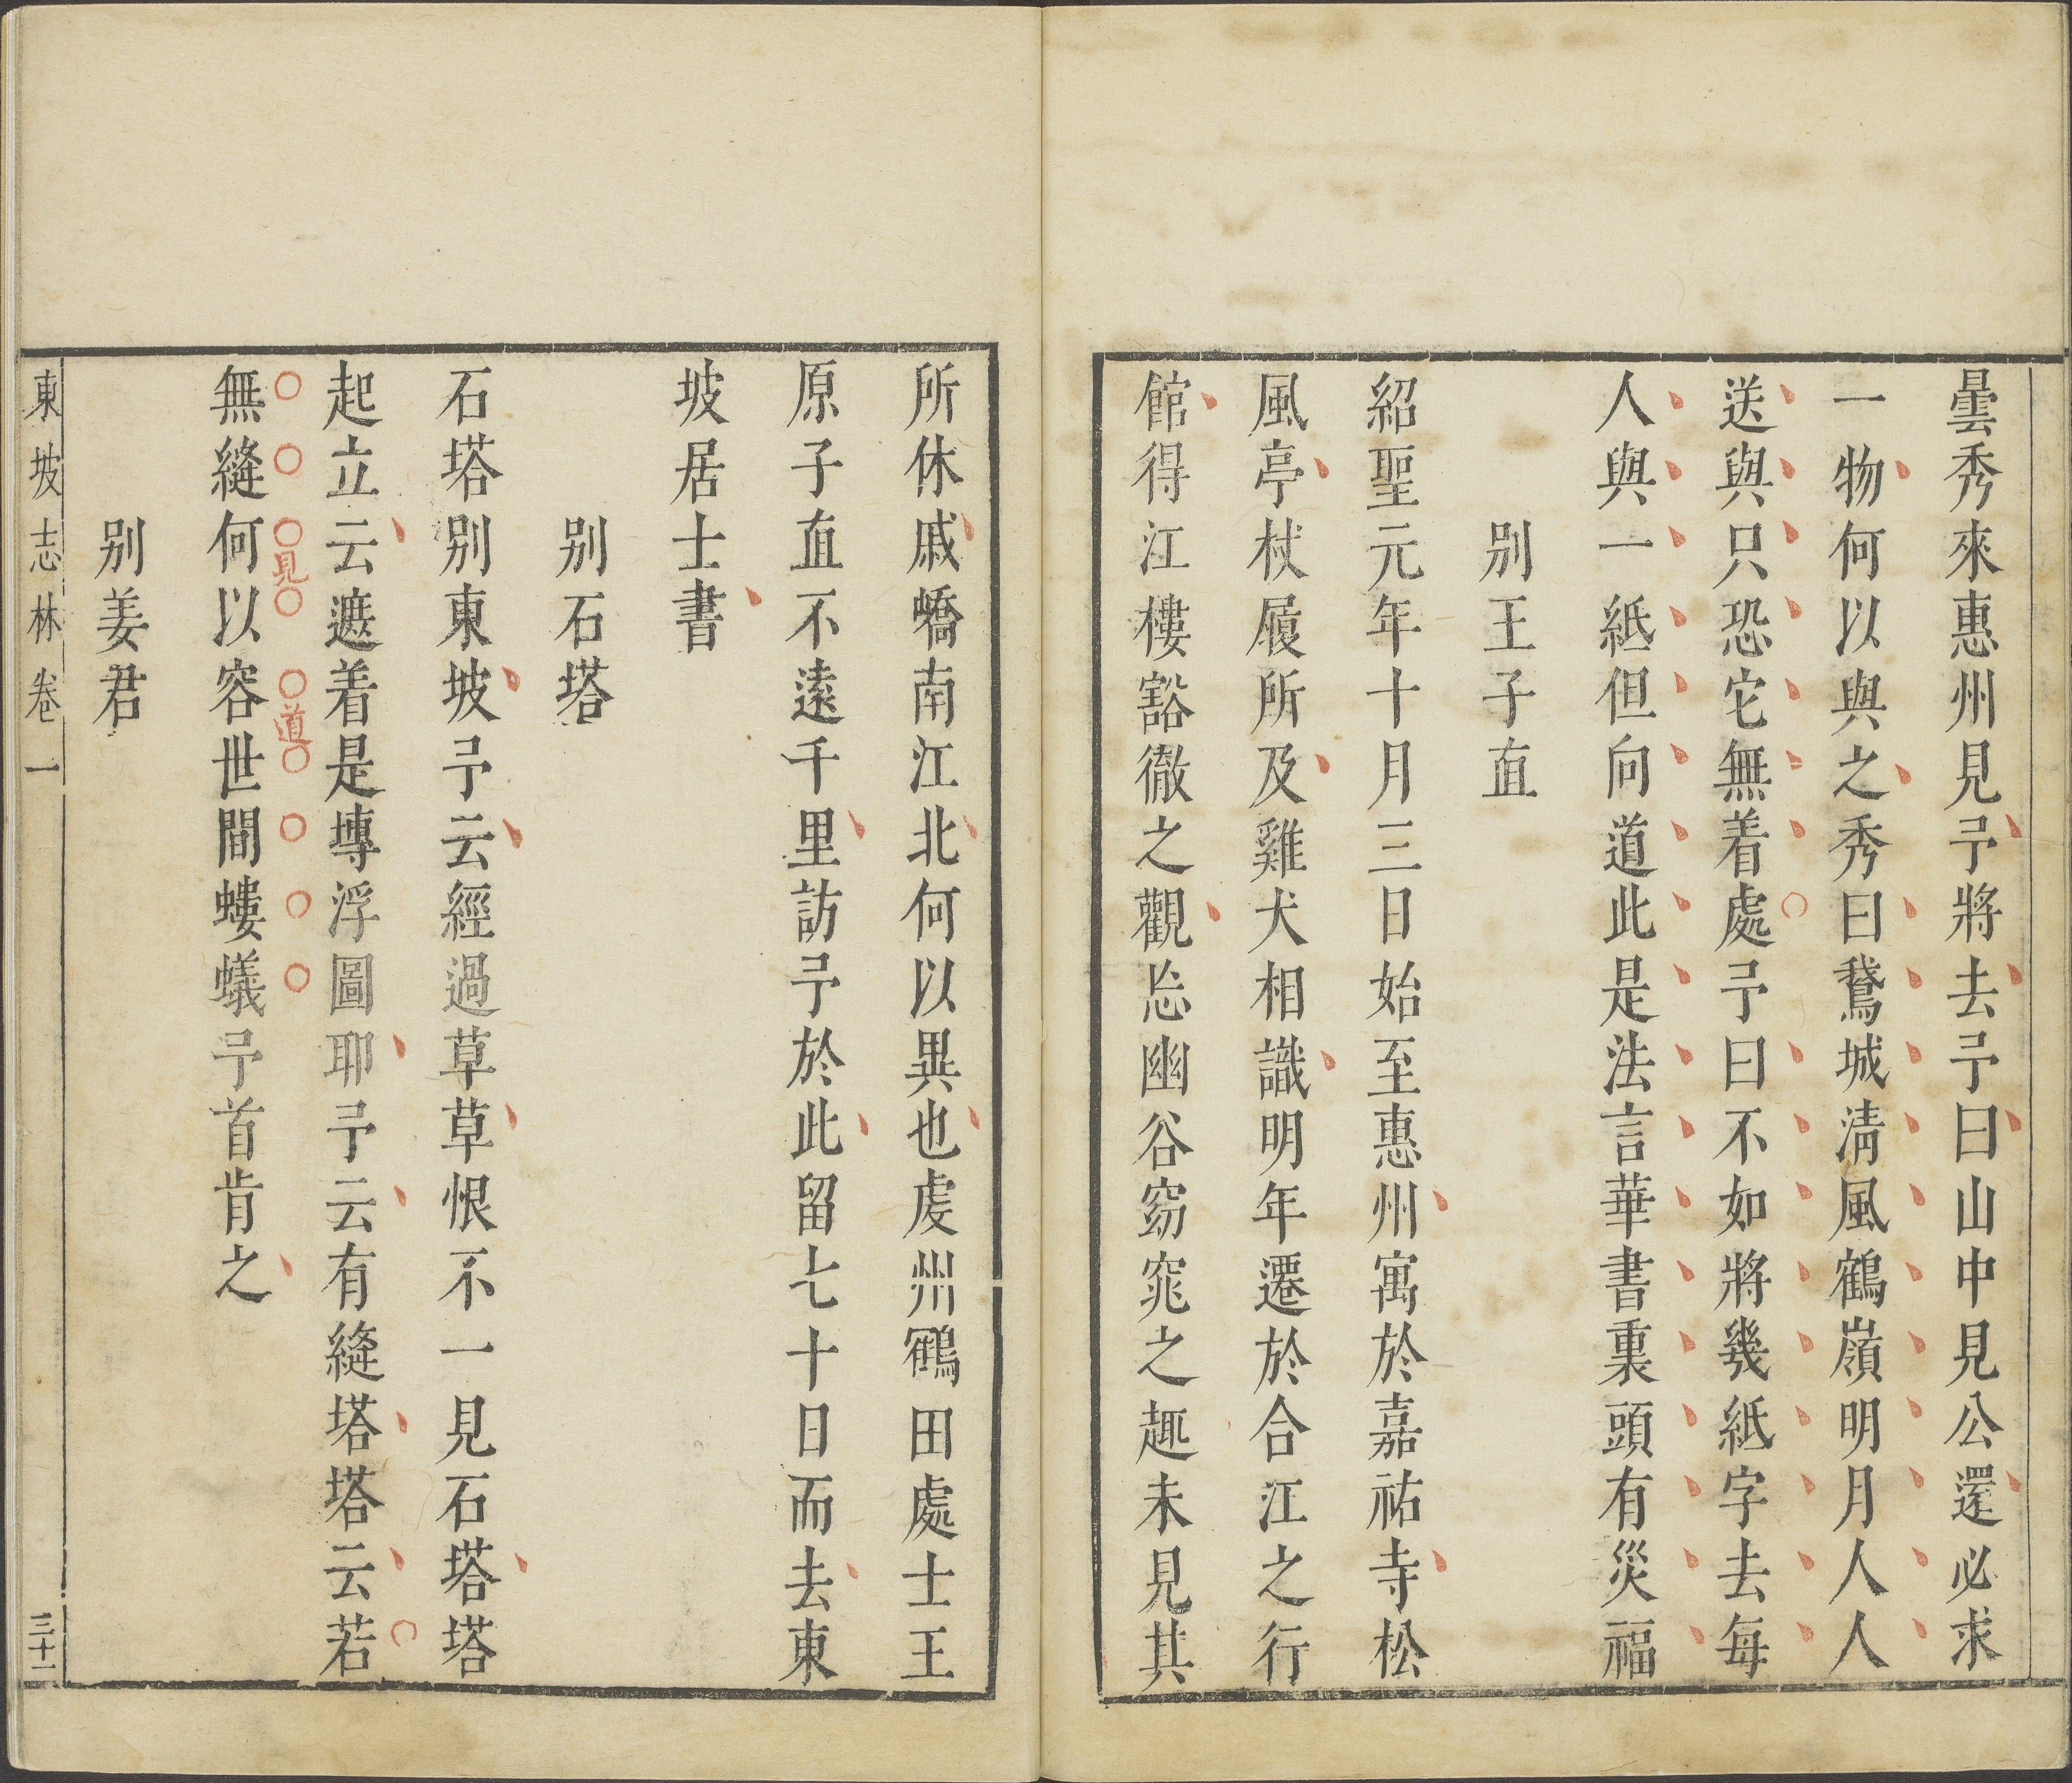 曇秀來惠州見予將去予曰山中見公還必求
一物何以與之秀曰鵞城淸風鶴嶺明月人人
送與只恐它無着處予曰不如將幾紙字去每
人與一紙但向道此是法言華書裏頭有災福
別王子直
紹聖元年十月三日始至惠州寓於嘉祐寺松
風亭杖履所及雞犬相識明年遷於合江之行
館得江樓豁徹之觀忘幽谷窈窕之趣未見其
所休戚嶠南江北何以異也虔州鶴田處士王
原子直不遠千里訪予於此留七十日而去東
坡居士書
別石塔
石塔別東坡予云經過草草恨不一見石塔塔
起立云遮着是塼浮圖耶予云有縫塔塔云若
無縫何以容世間螻蟻予首肯之
見
道
別姜君
東坡志林卷一
三十二